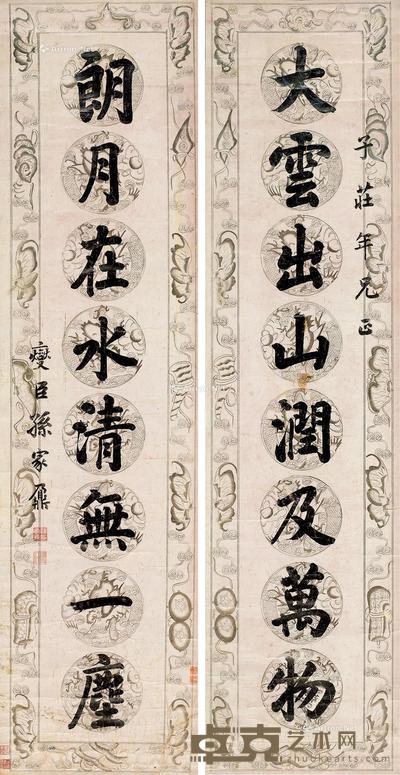 大雲出山潤及萬物
子莊年兄正
朗月在水清無一塵
燮臣孫家鼐
卓克艺术网